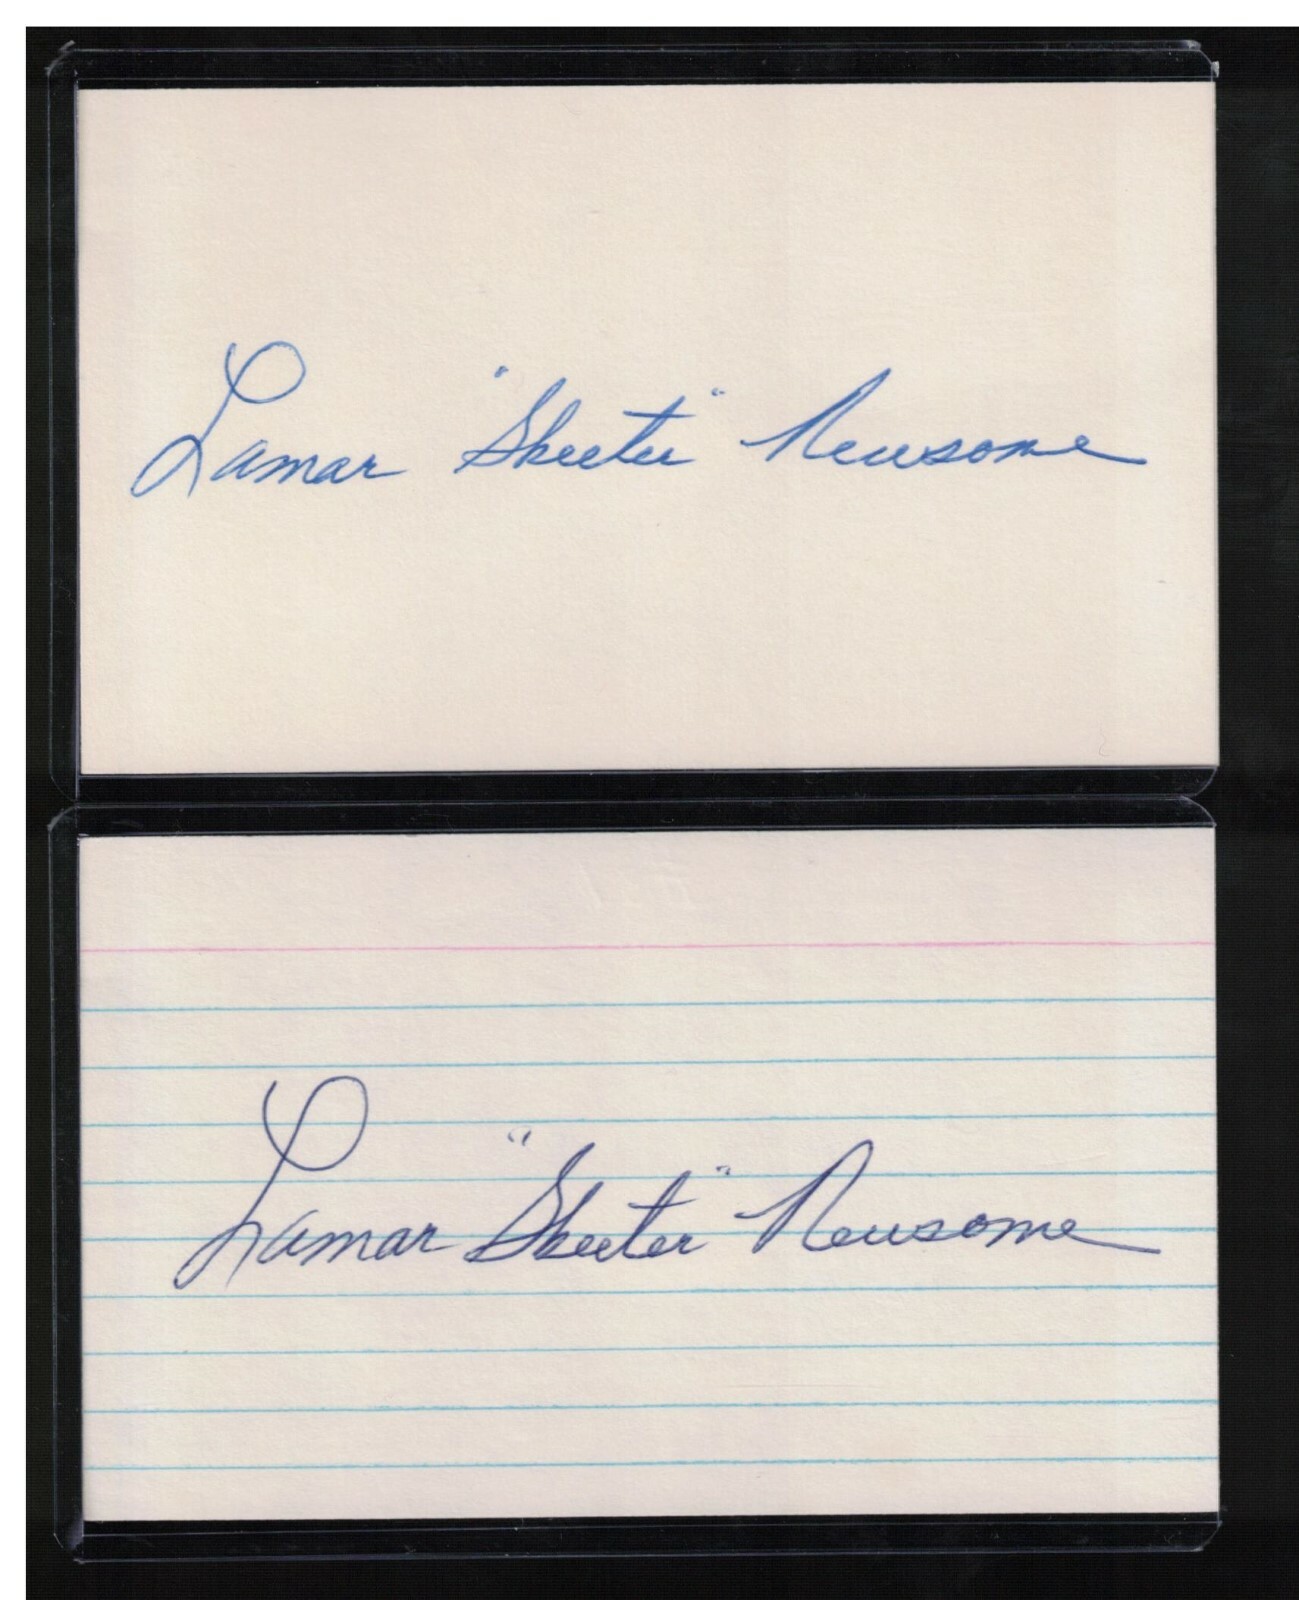 Lamar "Skeeter" Newsome
Lamar "Skeeter" Newsome